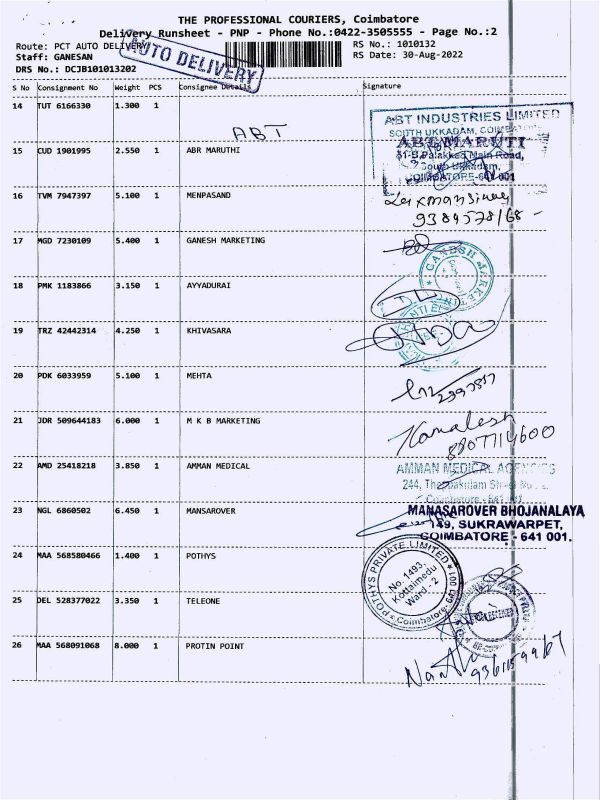 THE PROFESSIONAL COURIERS, Coimbatore
Delivery Runsheet - PNP - Phone No.:0422-3505555 - Page No.:2
Route: PCT AUTO DELIVERY
RS No.: 1010132
Staff: GANESAN
RS Date: 30-Aug-2022
DRS No.: DCJB101013202
AUTO DELIVERY
S No Consignment No Weight PCS Consignee Details Signature
14 TUT 6166330 1.300 1
ABT
ABT INDUSTRIES LIMITED
SOUTH UKKADAM,
15 CUD 1901995 2.550 1 ABR MARUTHI
ABT MARUTI
Palakkad Main Road,
South Ukkadam,
COIMBATORE-641 001
16 TVM 7947397 5.100 1 MENPASAND
17 MGD 7230109 5.400 1 GANESH MARKETING
GANESH MARKET
18 PMK 1183866 3.150 1 AYYADURAI
19 TRZ 42442314 4.250 1 KHIVASARA
20 PDK 6033959 5.100 1 MEHTA
21 JDR 509644183 6.000 1 M K B MARKETING
Kamalesh
8807714600
22 AMD 25418218 3.850 1 AMMAN MEDICAL
AMMAN MEDICAL AGENCIES
244,
Coimbatore - 641 001
23 NGL 6860502 6.450 1 MANSAROVER
MANASAROVER BHOJANALAYA
149, SUKRAWARPET,
COIMBATORE - 641 001.
24 MAA 568580466 1.400 1 POTHYS
POTHYS PRIVATE LIMITED
No. 1493,
Kottaimedu
Ward - 2
Coimbatore-641 001
25 DEL 528377022 3.350 1 TELEONE
26 MAA 568091068 8.000 1 PROTIN POINT